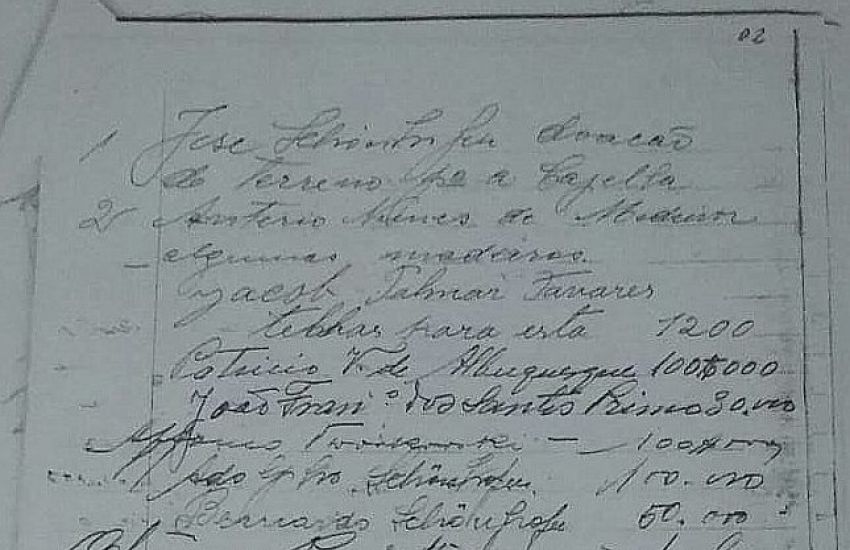 02
1 Jose Schönhofen doacão
do Terreno pa a Capella
2 Anterio Nunes de Medeiros
algumas madeiras
Jacob Palmar Tavares
telhas para esta 1200
Patricio V. de Albuquerque 100$000
João Fran.º dos Santos Primo 30.000
Affonso 100$000
Adolpho Schönhofen 100.000
Bernardo Schönhofen 50.000